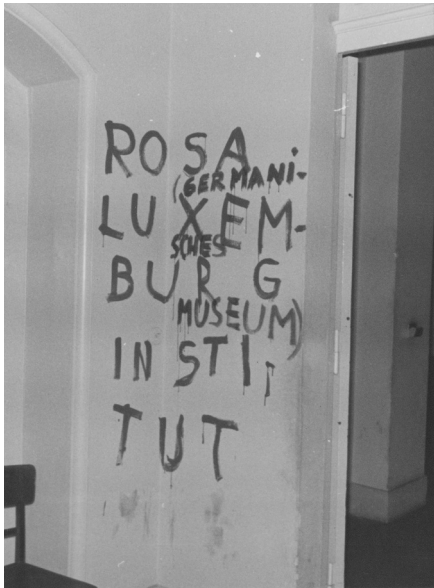 ROSA
(GERMANI-
LUXEM-
SCHES
BURG
MUSEUM)
INSTI-
TUT